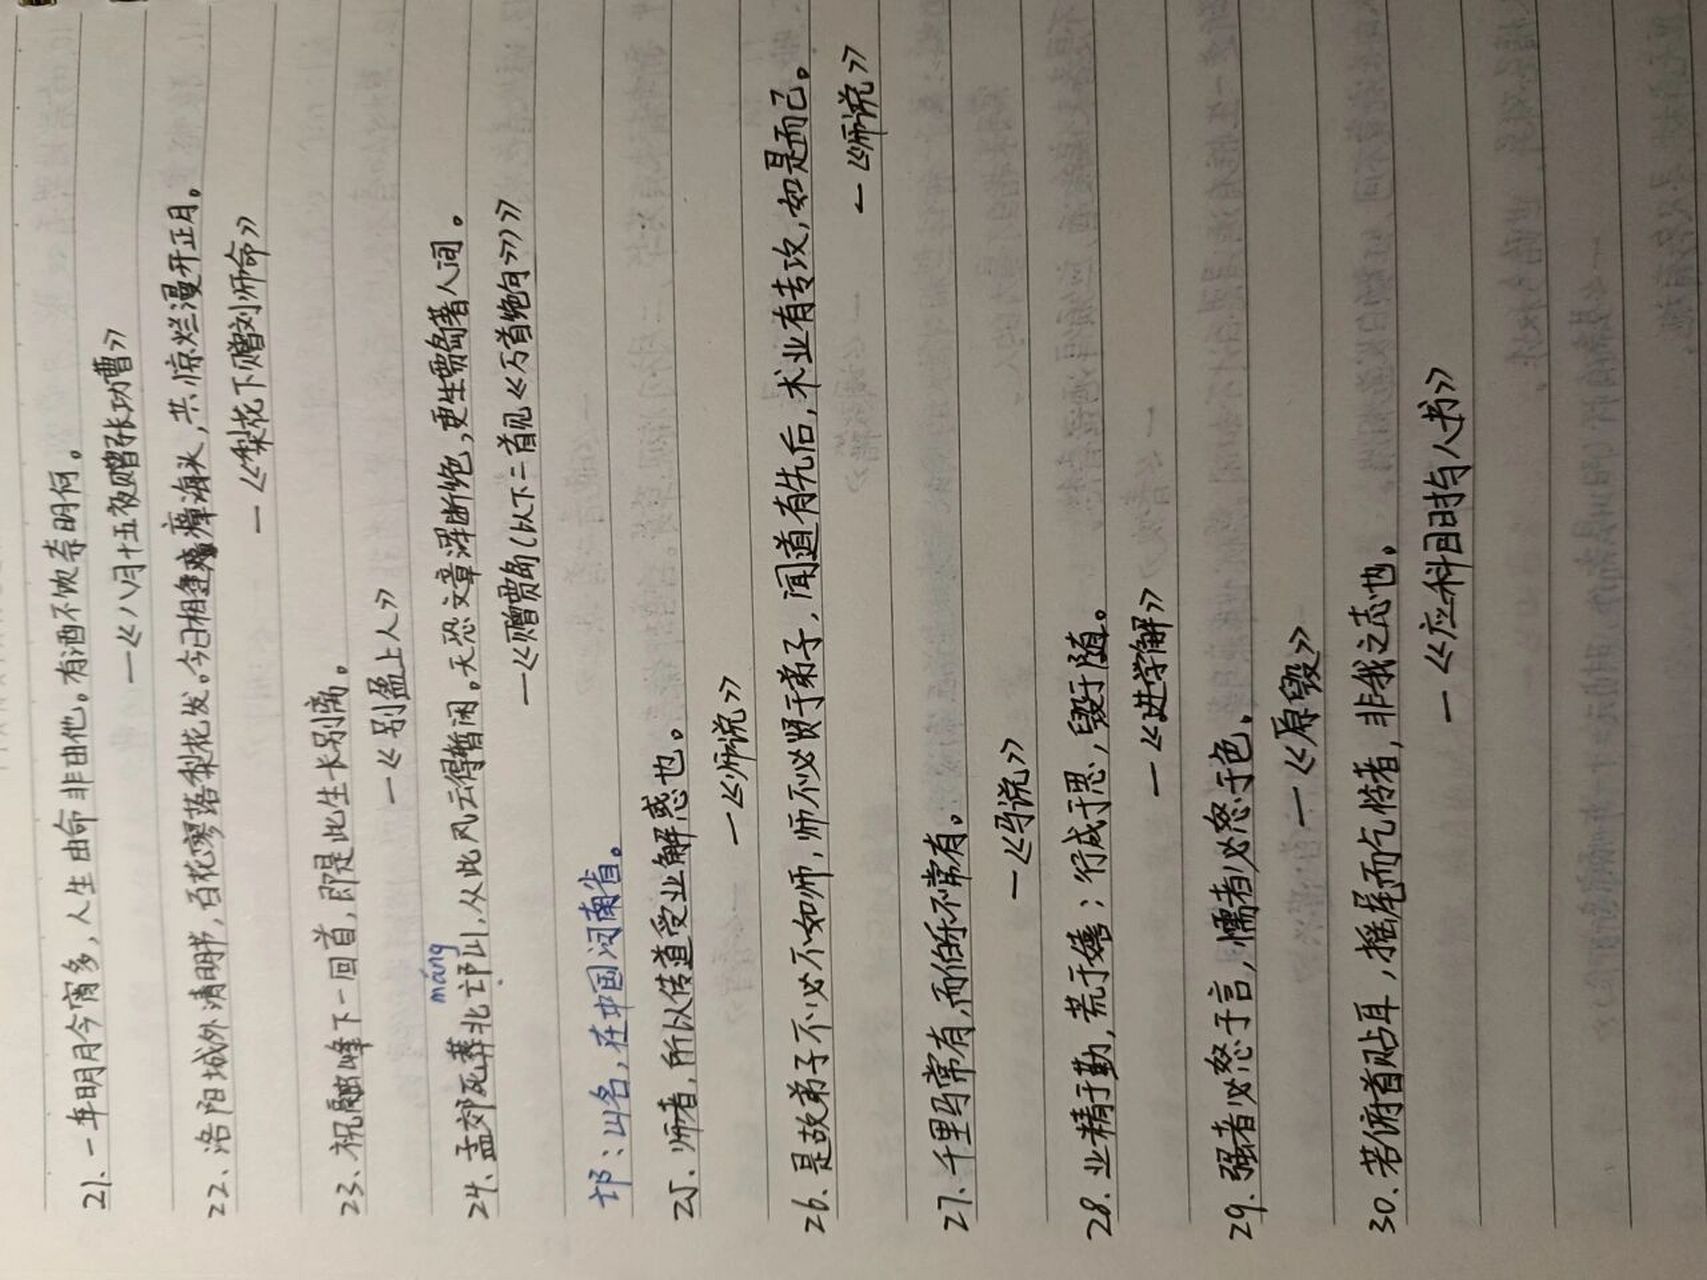 21. 一年明月今宵多，人生由命非由他。有酒不饮奈明何。
—《八月十五夜赠张功曹》
22、洛阳城外清明节，百花寥落梨花发。今日相逢瘴海头，共惊烂漫开正月。
—《梨花下赠刘师命》
23、祝融峰下一回首，即是此生长别离。
—《别盈上人》
máng
24、孟郊死葬北邙山，从此风云得暂闲。天恐文章浑断绝，更生贾岛著人间。
—《赠贾岛（以下二首见《万首绝句》）》
邙：山名，在中国河南省。
25、师者，所以传道受业解惑也。
—《师说》
26、是故弟子不必不如师，师不必贤于弟子，闻道有先后，术业有专攻，如是而已。
—《师说》
27、千里马常有，而伯乐不常有。
—《马说》
28. 业精于勤，荒于嬉；行成于思，毁于随。
—《进学解》
29. 强者必怒于言，懦者必怒于色。
—《原毁》
30. 若俯首贴耳，摇尾而乞怜者，非我之志也。
—《应科目时与人书》